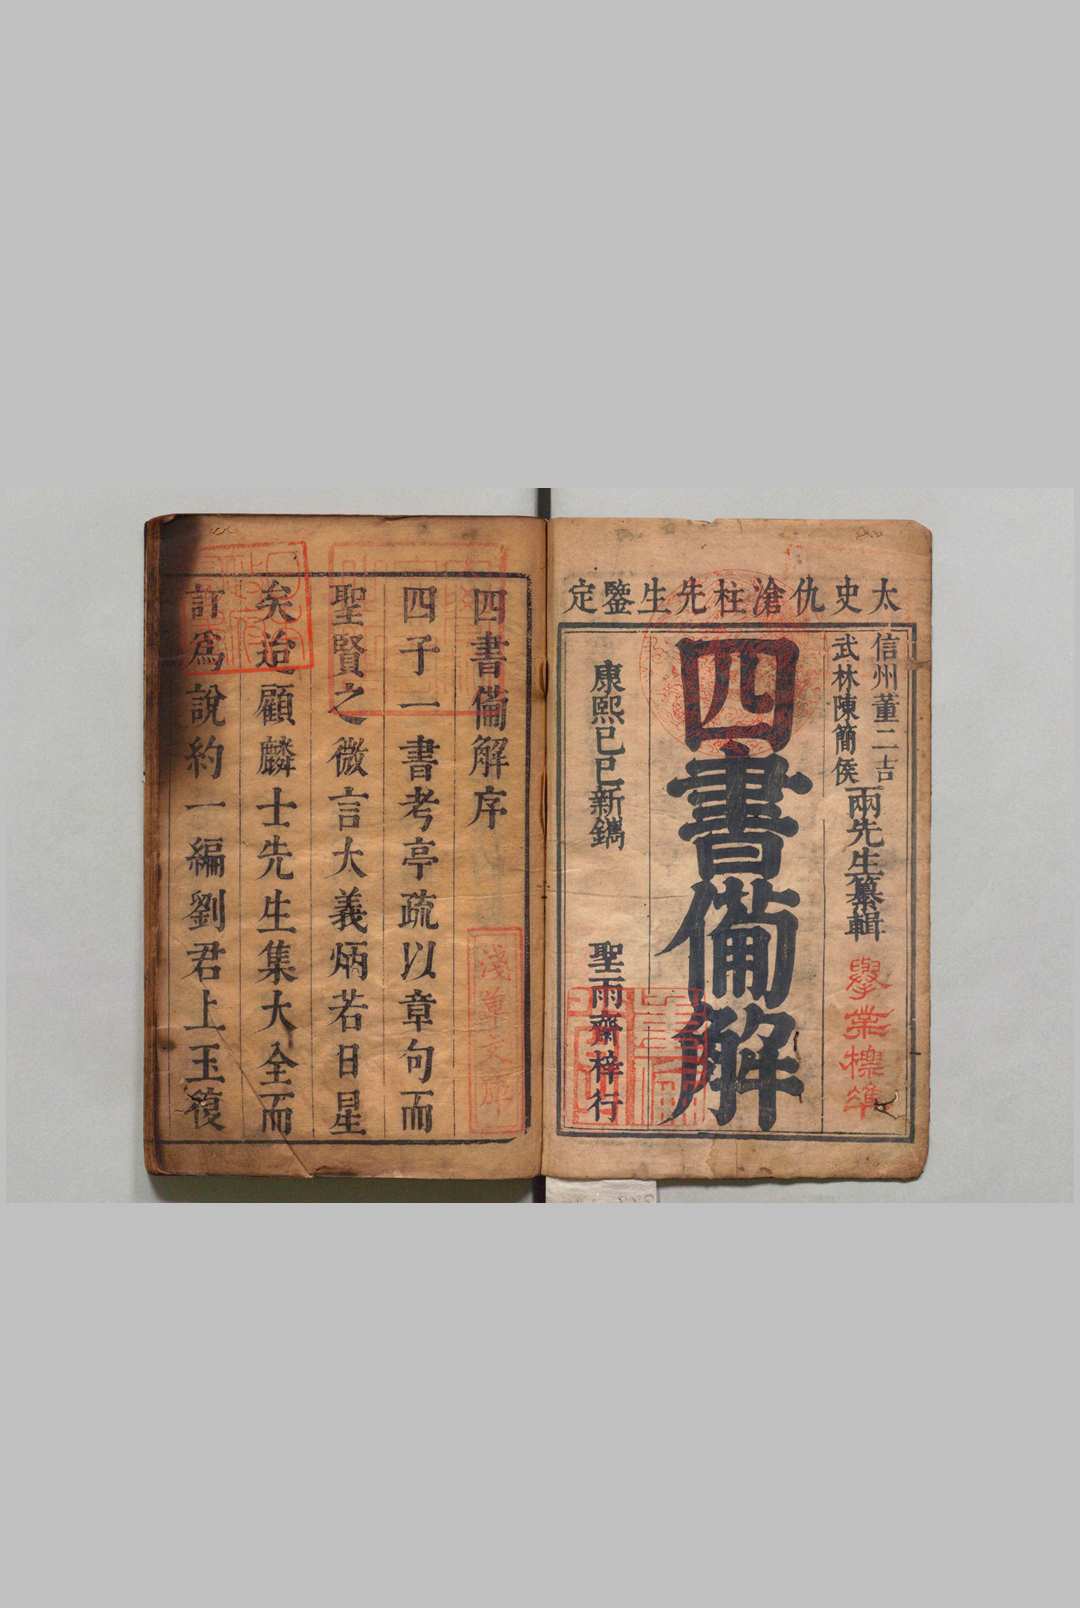 太史仇滄柱先生鑒定
信州董二吉
武林陳簡侯
兩先生纂輯
舉業標準
四書備解
康熙己巳新鐫
聖雨齋梓行
四書備解序
四子一書考亭疏以章句而
聖賢之微言大義炳若日星
矣迨顧麟士先生集大全而
訂爲說約一編劉君上玉復
淺草文庫